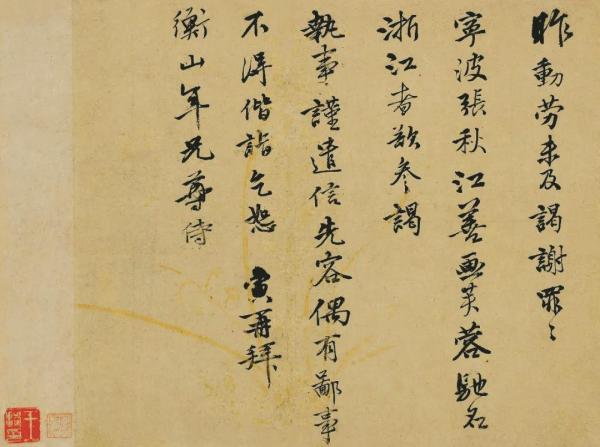 昨動勞未及謁謝罪〻
寧波張秋江善畫芙蓉馳名
浙江者欲參謁
執事謹遣信先容偶有鄙事
不得偕詣乞恕　寅再拜
衡山年兄尊侍